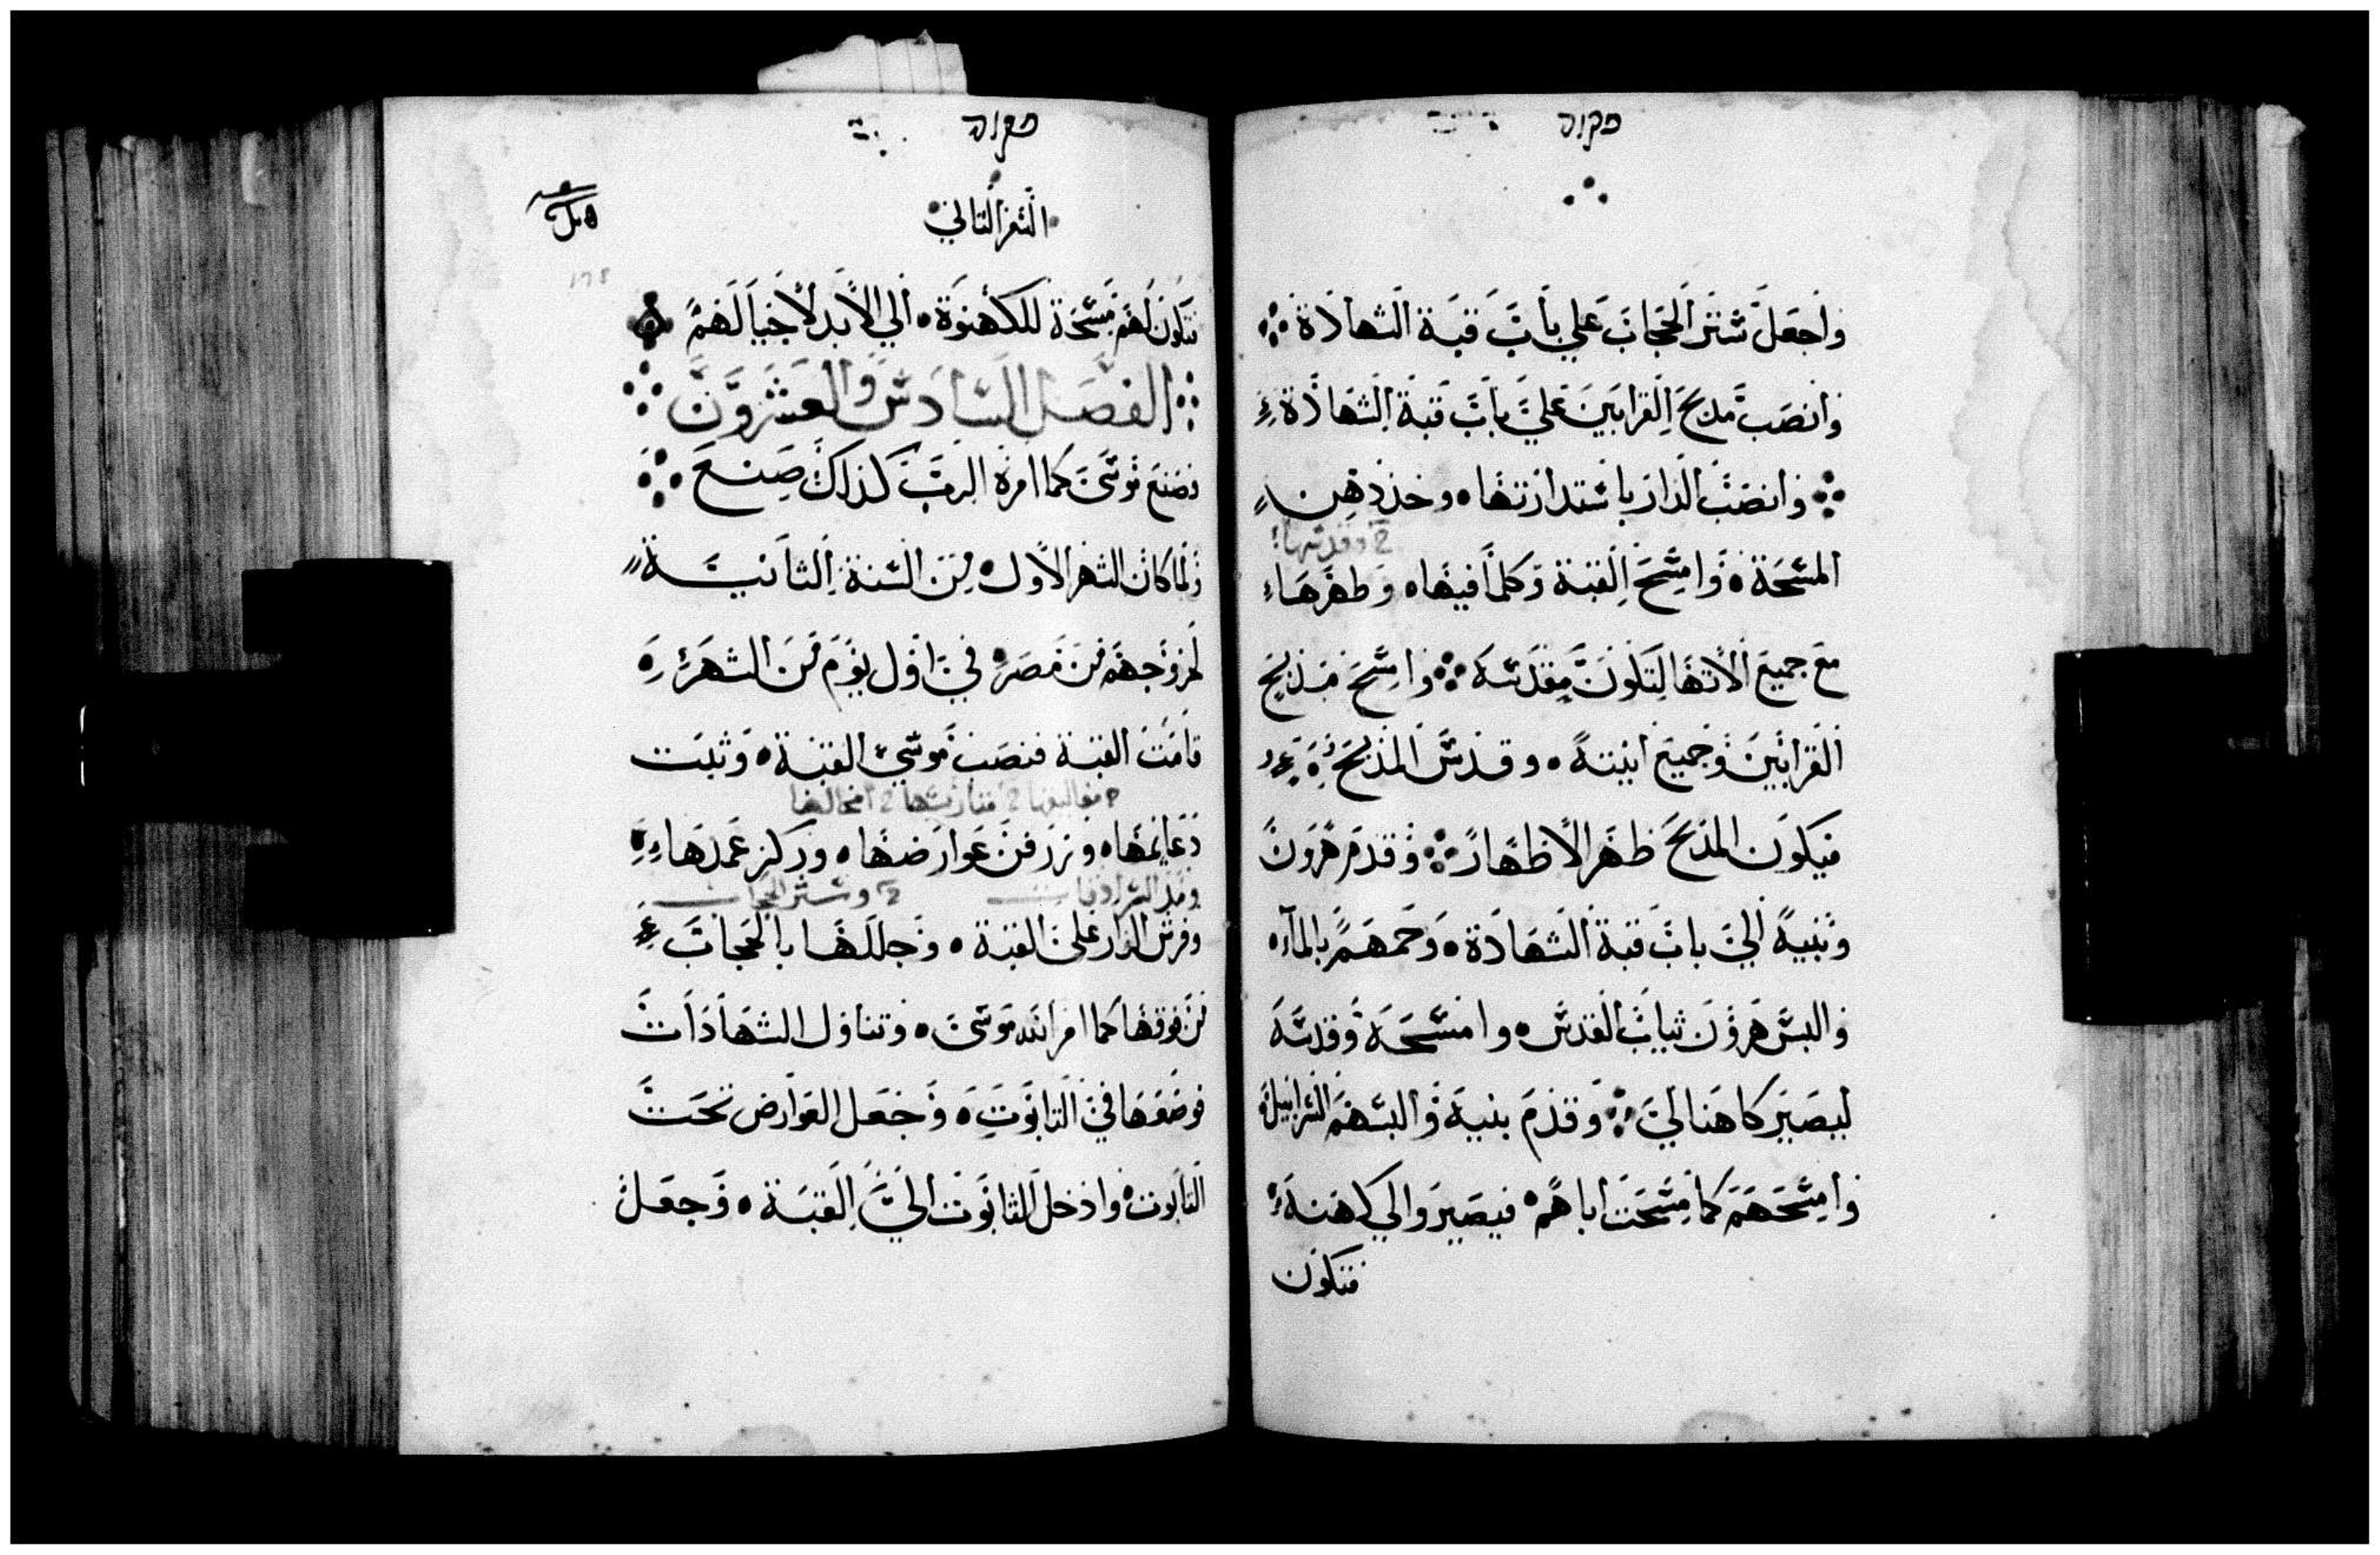 פקודי
واجعل ستر الحجاب علي باب قبة الشهادة
وانصب مدبح القرابين علي باب قبة الشهادة
وانصب الدار باستدارتها وخذ دهن
2 وقدسها
المسحة وامسح القبة وكلما فيها وطهرها
مع جميع الاتها لتكون مقدسه وامسح مذبح
القرابين وجميع انيته وقدس المذبح
فيكون المذبح طهر الاطهار وقدم هرون
وبنيه الي باب قبة الشهادة وحمهم بالماء
والبس هرون ثياب القدس وامسحه وقدسه
ليصير كاهنا لي وقدم بنيه والبسهم السرابيل
وامسحهم كما مسحت اباهم فيصيروا لي كهنة
فتكون
פקודי
السفر التاني
فتكون لهم مسحة للكهنوة الي الابد لاجيالهم
الفصل السادس والعشرون
فصنع موسي كما امره الرب كذاك صنع
ولما كان الشهر الاول من السنة الثانية
لخروجهم من مصر في اول يوم من الشهر
قامت القبة فنصب موسي القبة وثبت
دعايمها وزرفن عوارضها وركز عمدها
ومد السرادقات 2 وستر الحجاب
وفرش الدار علي القبة وجللها بالحجاب
من فوقها كما امر الله موسي وتناول الشهادات
فوضعها في التابوت وجعل العوارض تحت
التابوت وادخل التابوت الي القبة وجعل